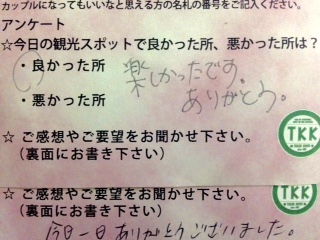 カップルになってもいいなと思える方の名札の番号をご記入ください。
アンケート
☆今日の観光スポットで良かった所、悪かった所は？
・良かった所
楽しかったです。
・悪かった所
ありがとう。
☆ ご感想やご要望をお聞かせ下さい。
（裏面にお書き下さい）
TKK
☆ ご感想やご要望をお聞かせ下さい。
（裏面にお書き下さい）
TKK
今日一日ありがとうございました。